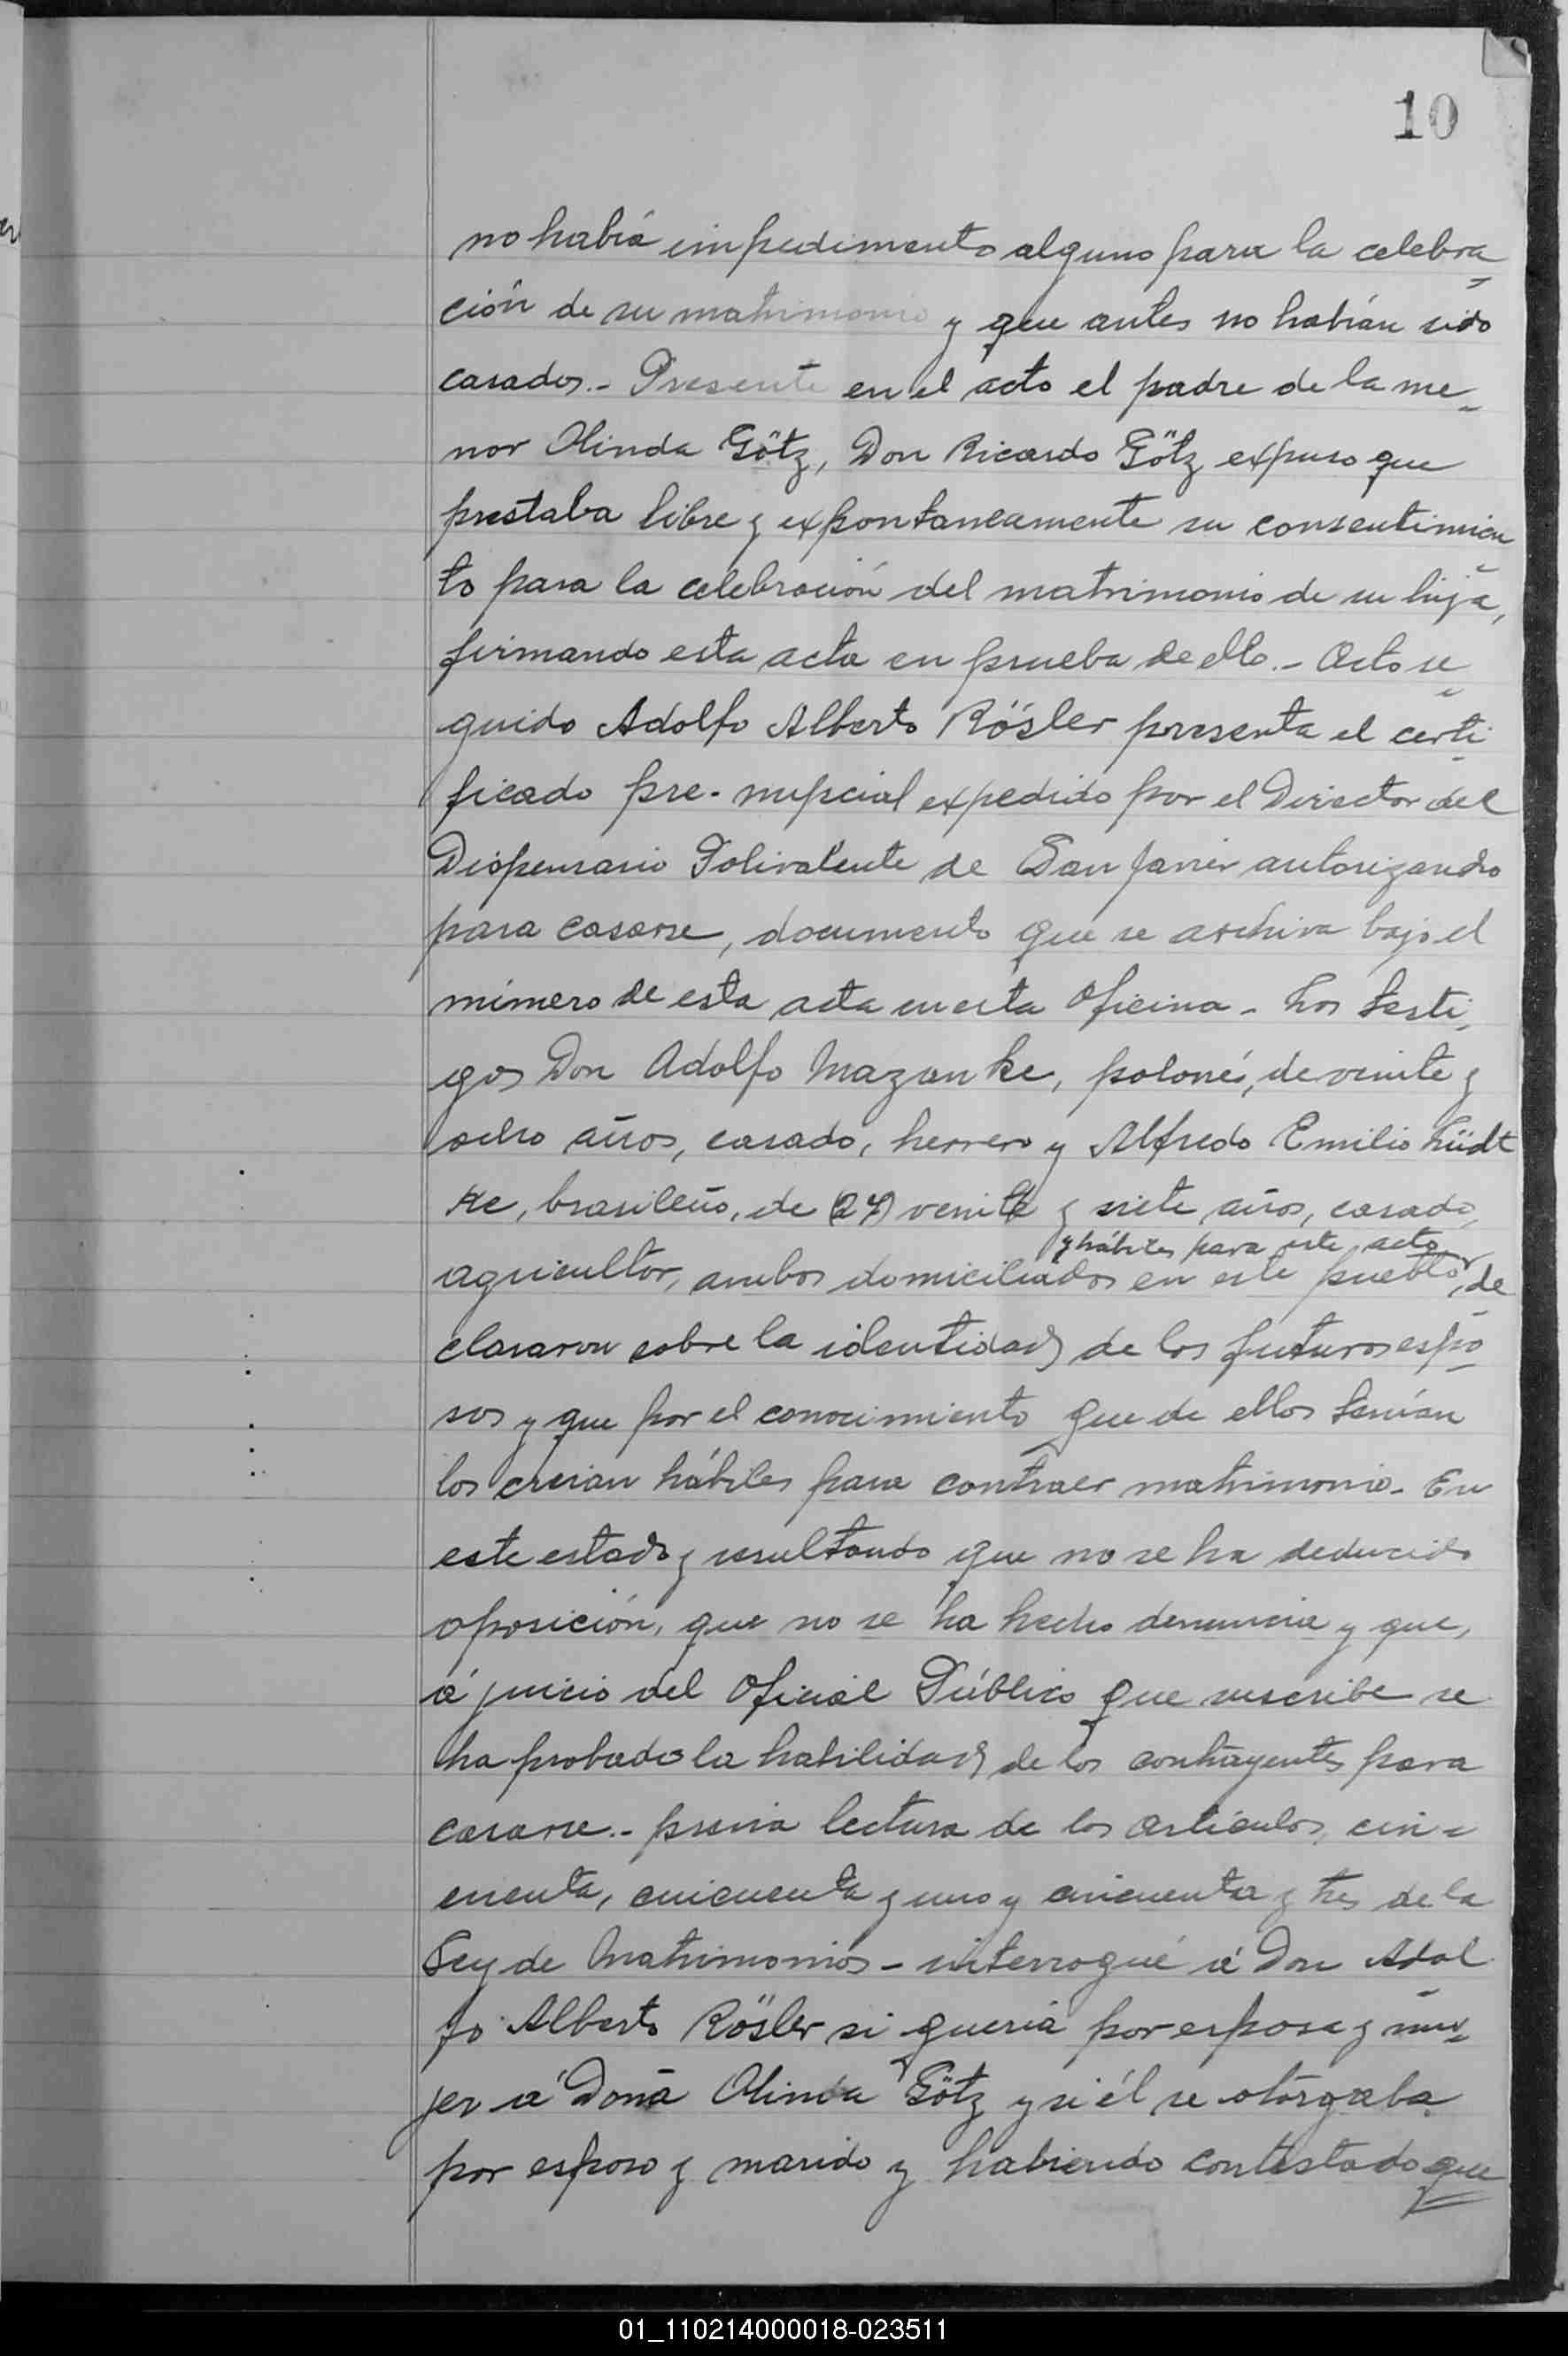 10
no había impedimento alguno para la celebra-
ción de su matrimonio y que antes no habían sido
casados.- Presente en el acto el padre de la me-
nor Olinda Götz, Don Ricardo Götz expuso que
prestaba libre y expontaneamente su consentimien-
to para la celebración del matrimonio de su hija,
firmando esta acta en prueba de ello.- Acto se-
guido Adolfo Alberto Rösler presenta el certi-
ficado pre-nupcial expedido por el Director del
Dispensario Polivalente de San Javier autorizando
para casarse, documento que se archiva bajo el
número de esta acta en esta Oficina - Los testi-
gos Don Adolfo Mazanke, polonés, de veinte y
ocho años, casado, herrero y Alfredo Emilio Lüdt
ke, brasileño, de (27) veinte y siete años, casado,
y hábiles para este acto
agricultor, ambos domiciliados en este pueblo, de-
clararon sobre la identidad de los futuros espo-
sos y que por el conocimiento que de ellos tenían
los creían hábiles para contraer matrimonio - En
este estado y resultando que no se ha deducido
oposición, que no se ha hecho denuncia y que,
á juicio del Oficial Público que suscribe se
ha probado la habilidad de los contrayentes para
casarse.- previa lectura de los artículos, cin-
cuenta, cincuenta y uno y cincuenta y tres de la
Ley de Matrimonios - interrogué á Don Adol-
fo Alberto Rösler si quería por esposa y mu-
jer á Doña Olinda Götz y si él se otorgaba
por esposo y marido y habiendo contestado que
01_110214000018-023511